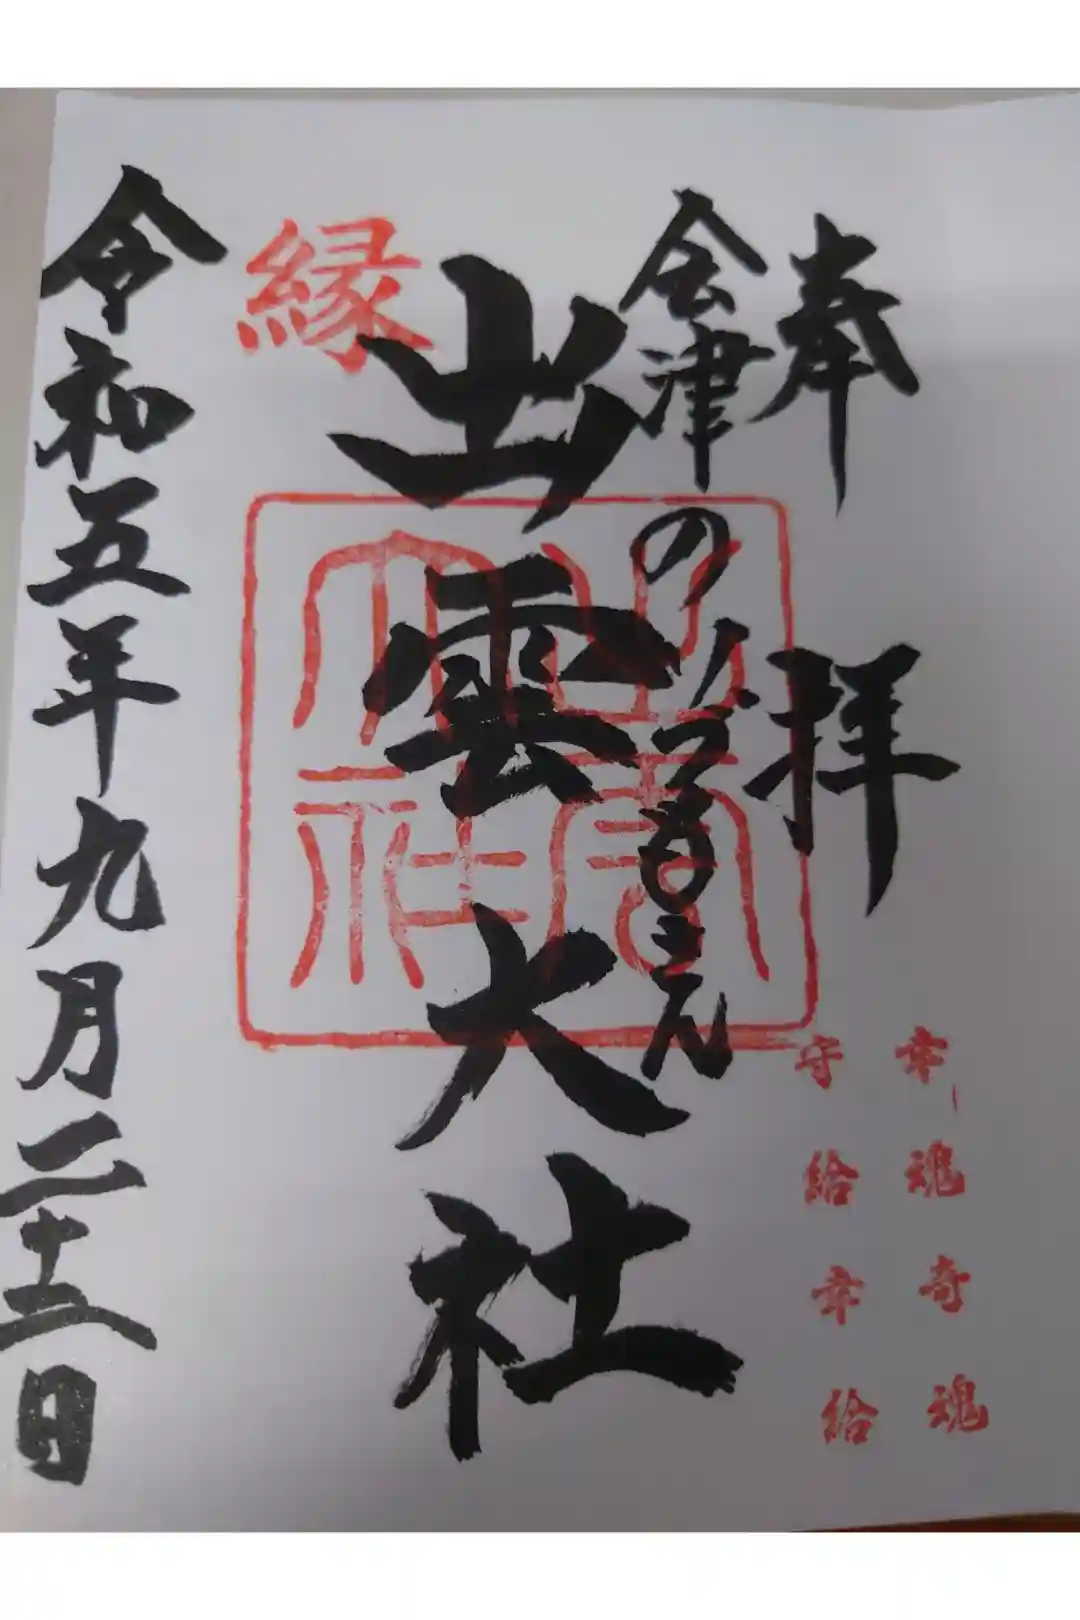 奉拝
会津のイヅモさん
出雲大社
縁
令和五年九月二十三日
出雲大社
幸魂奇魂
守給幸給